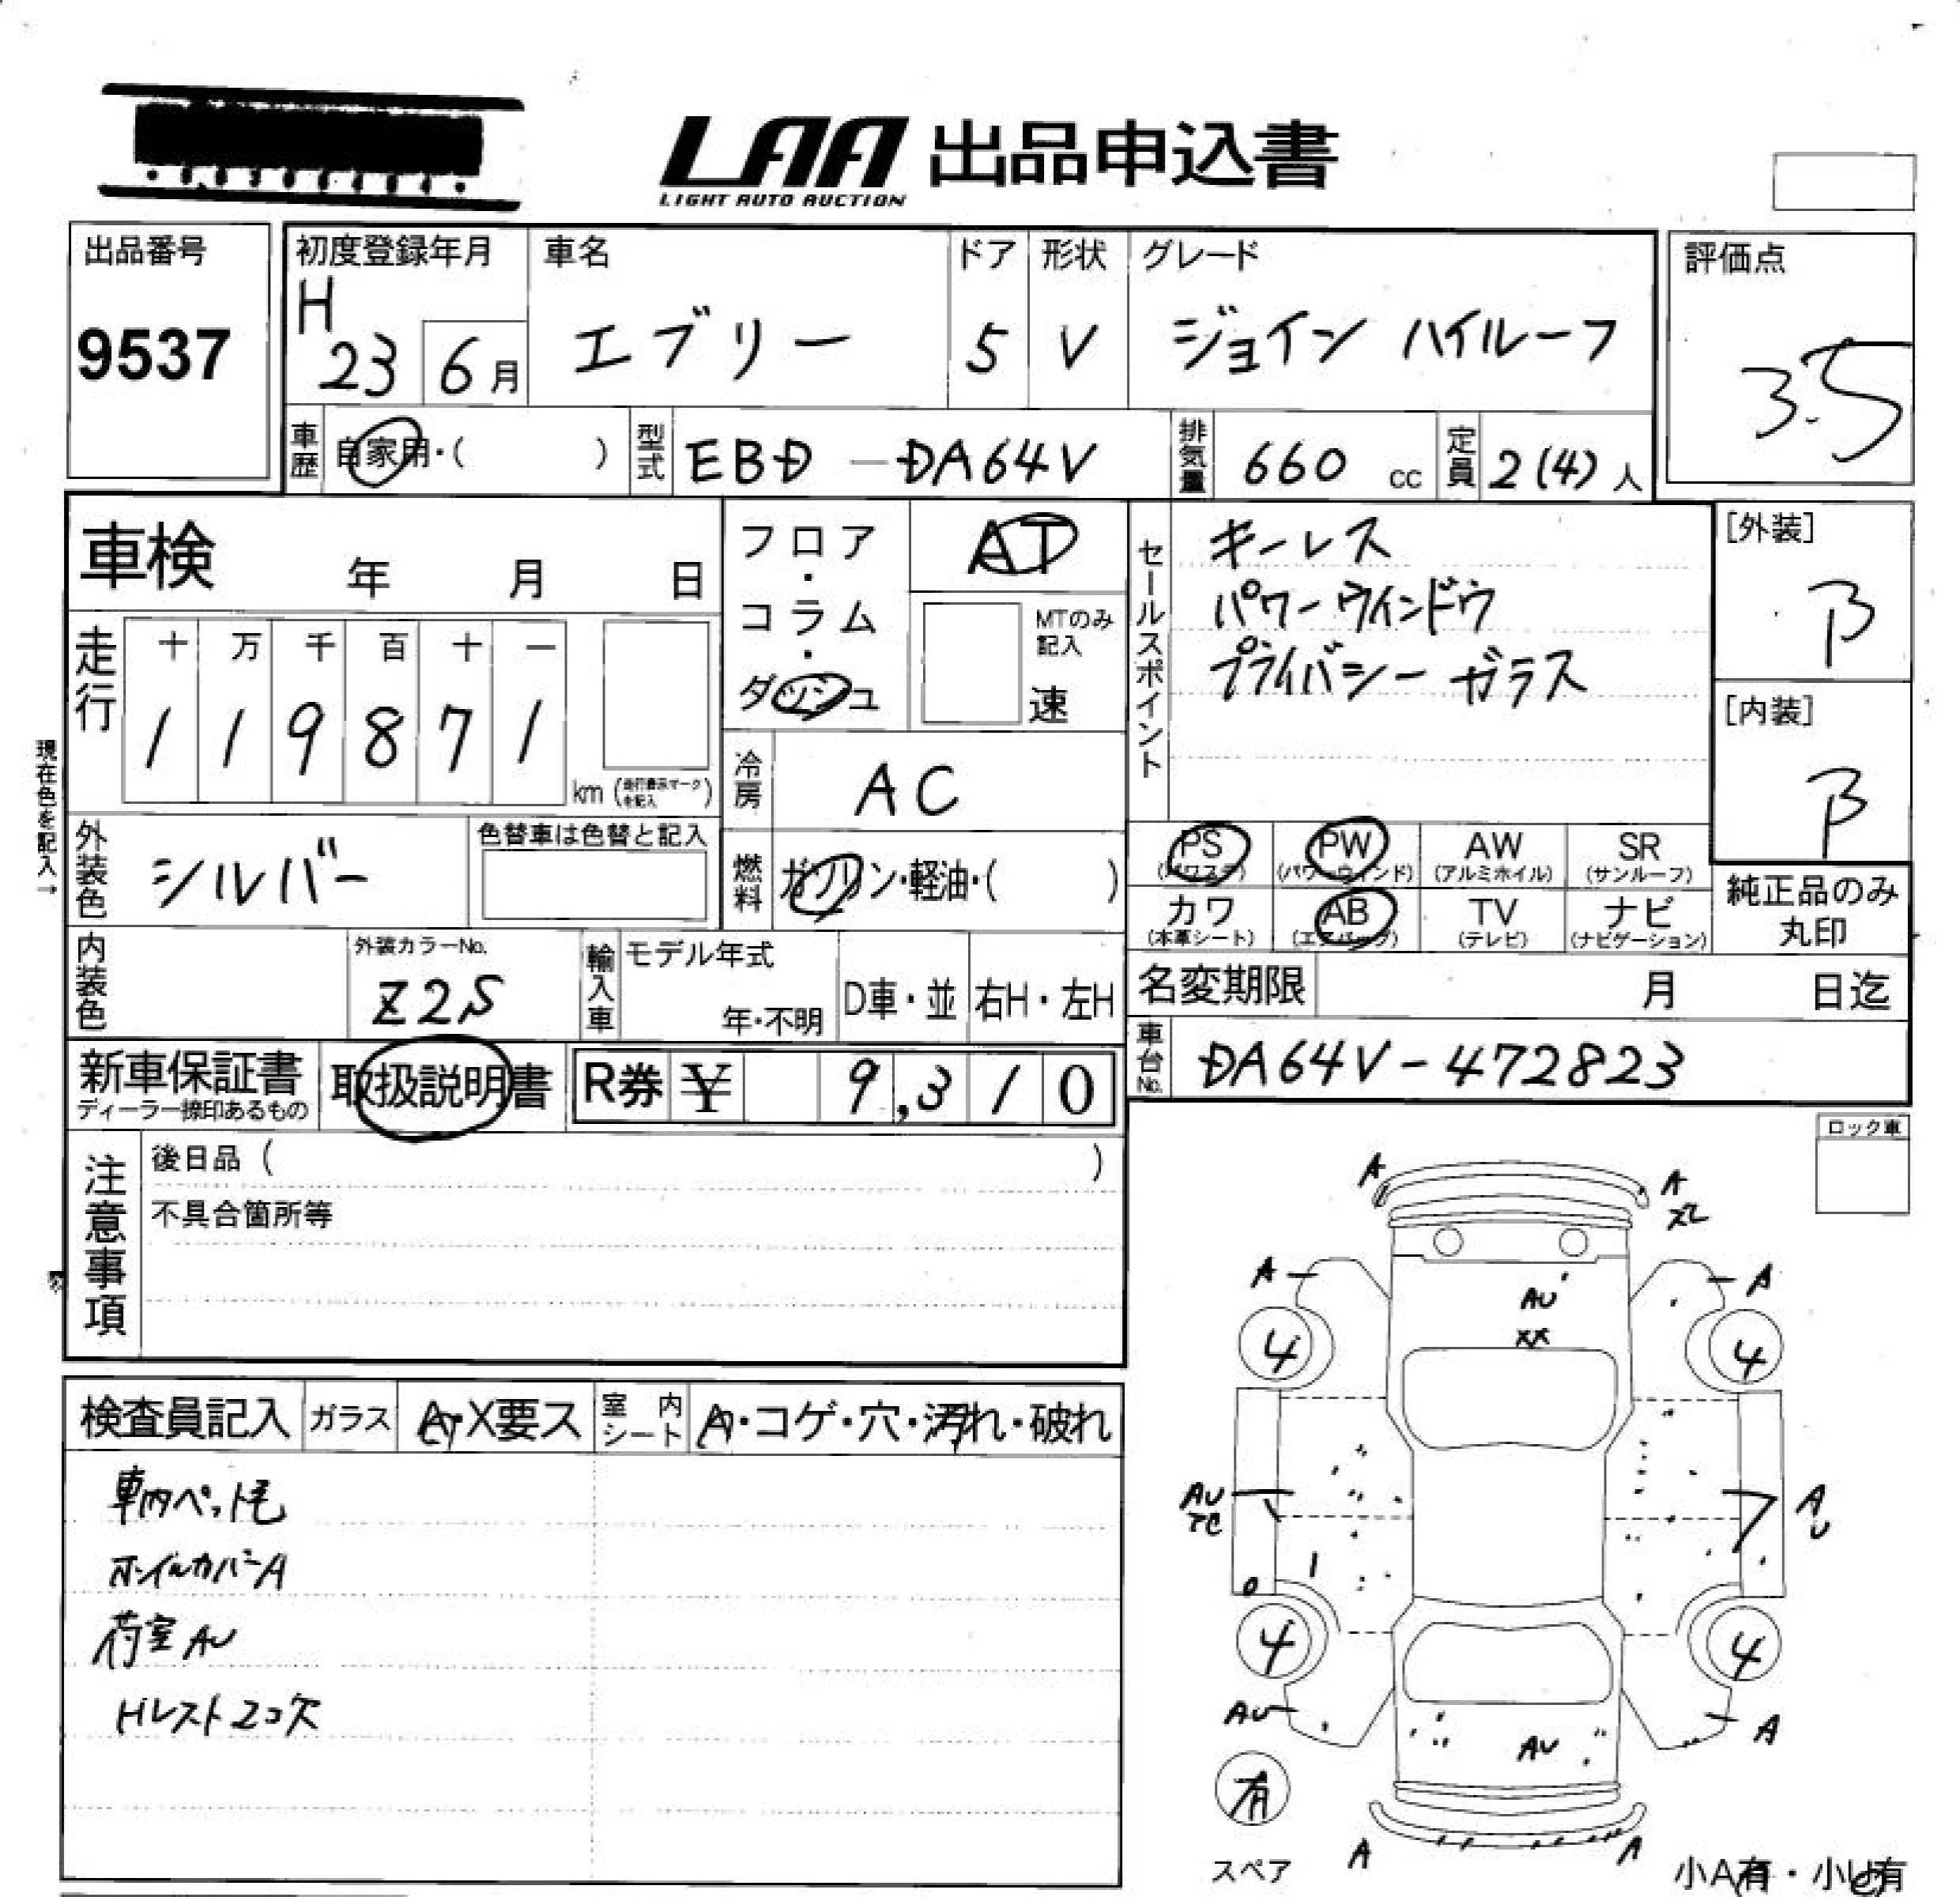 LAA 出品申込書
LIGHT AUTO AUCTION
出品番号
9537
初度登録年月
H
23 6月
車名
エブリー
ドア
5
形状
V
グレード
ジョイン ハイルーフ
評価点
3.5
車歴
自家用・( )
型式
EBD-DA64V
排気量
660 cc
定員
2(4)人
車検 年 月 日
フロア・コラム・ダッシュ
AT
MTのみ記入
速
セールスポイント
キーレス
パワーウインドウ
プライバシーガラス
[外装]
B
[内装]
B
走行
十 万 千 百 十 一
1 1 9 8 7 1
km(走行表示マークを記入)
現在色を記入→
冷房
AC
外装色
シルバー
色替車は色替と記入
燃料
ガソリン・軽油・( )
PS (パワステ)
PW (パワーウィンド)
AW (アルミホイル)
SR (サンルーフ)
カワ (本革シート)
AB (エアバッグ)
TV (テレビ)
ナビ (ナビゲーション)
純正品のみ
丸印
内装色
外装カラーNo.
Z2S
輸入車
モデル年式
年・不明
D車・並
右H・左H
名変期限 月 日迄
車台No.
DA64V-472823
新車保証書
ディーラー捺印あるもの
取扱説明書
R券 ¥ 9,310
注意事項
後日品( )
不具合箇所等
ロック車
検査員記入
ガラス
A・X要ス
室内シート
A・コゲ・穴・汚れ・破れ
車内ペット毛
ホイルカバーA
荷室AU
Hレスト2コ欠
A
A
XL
A
A
AU
XX
4
4
AU
A
U
4
4
AU
A
AU
有
スペア
A
A
小A有・小U有